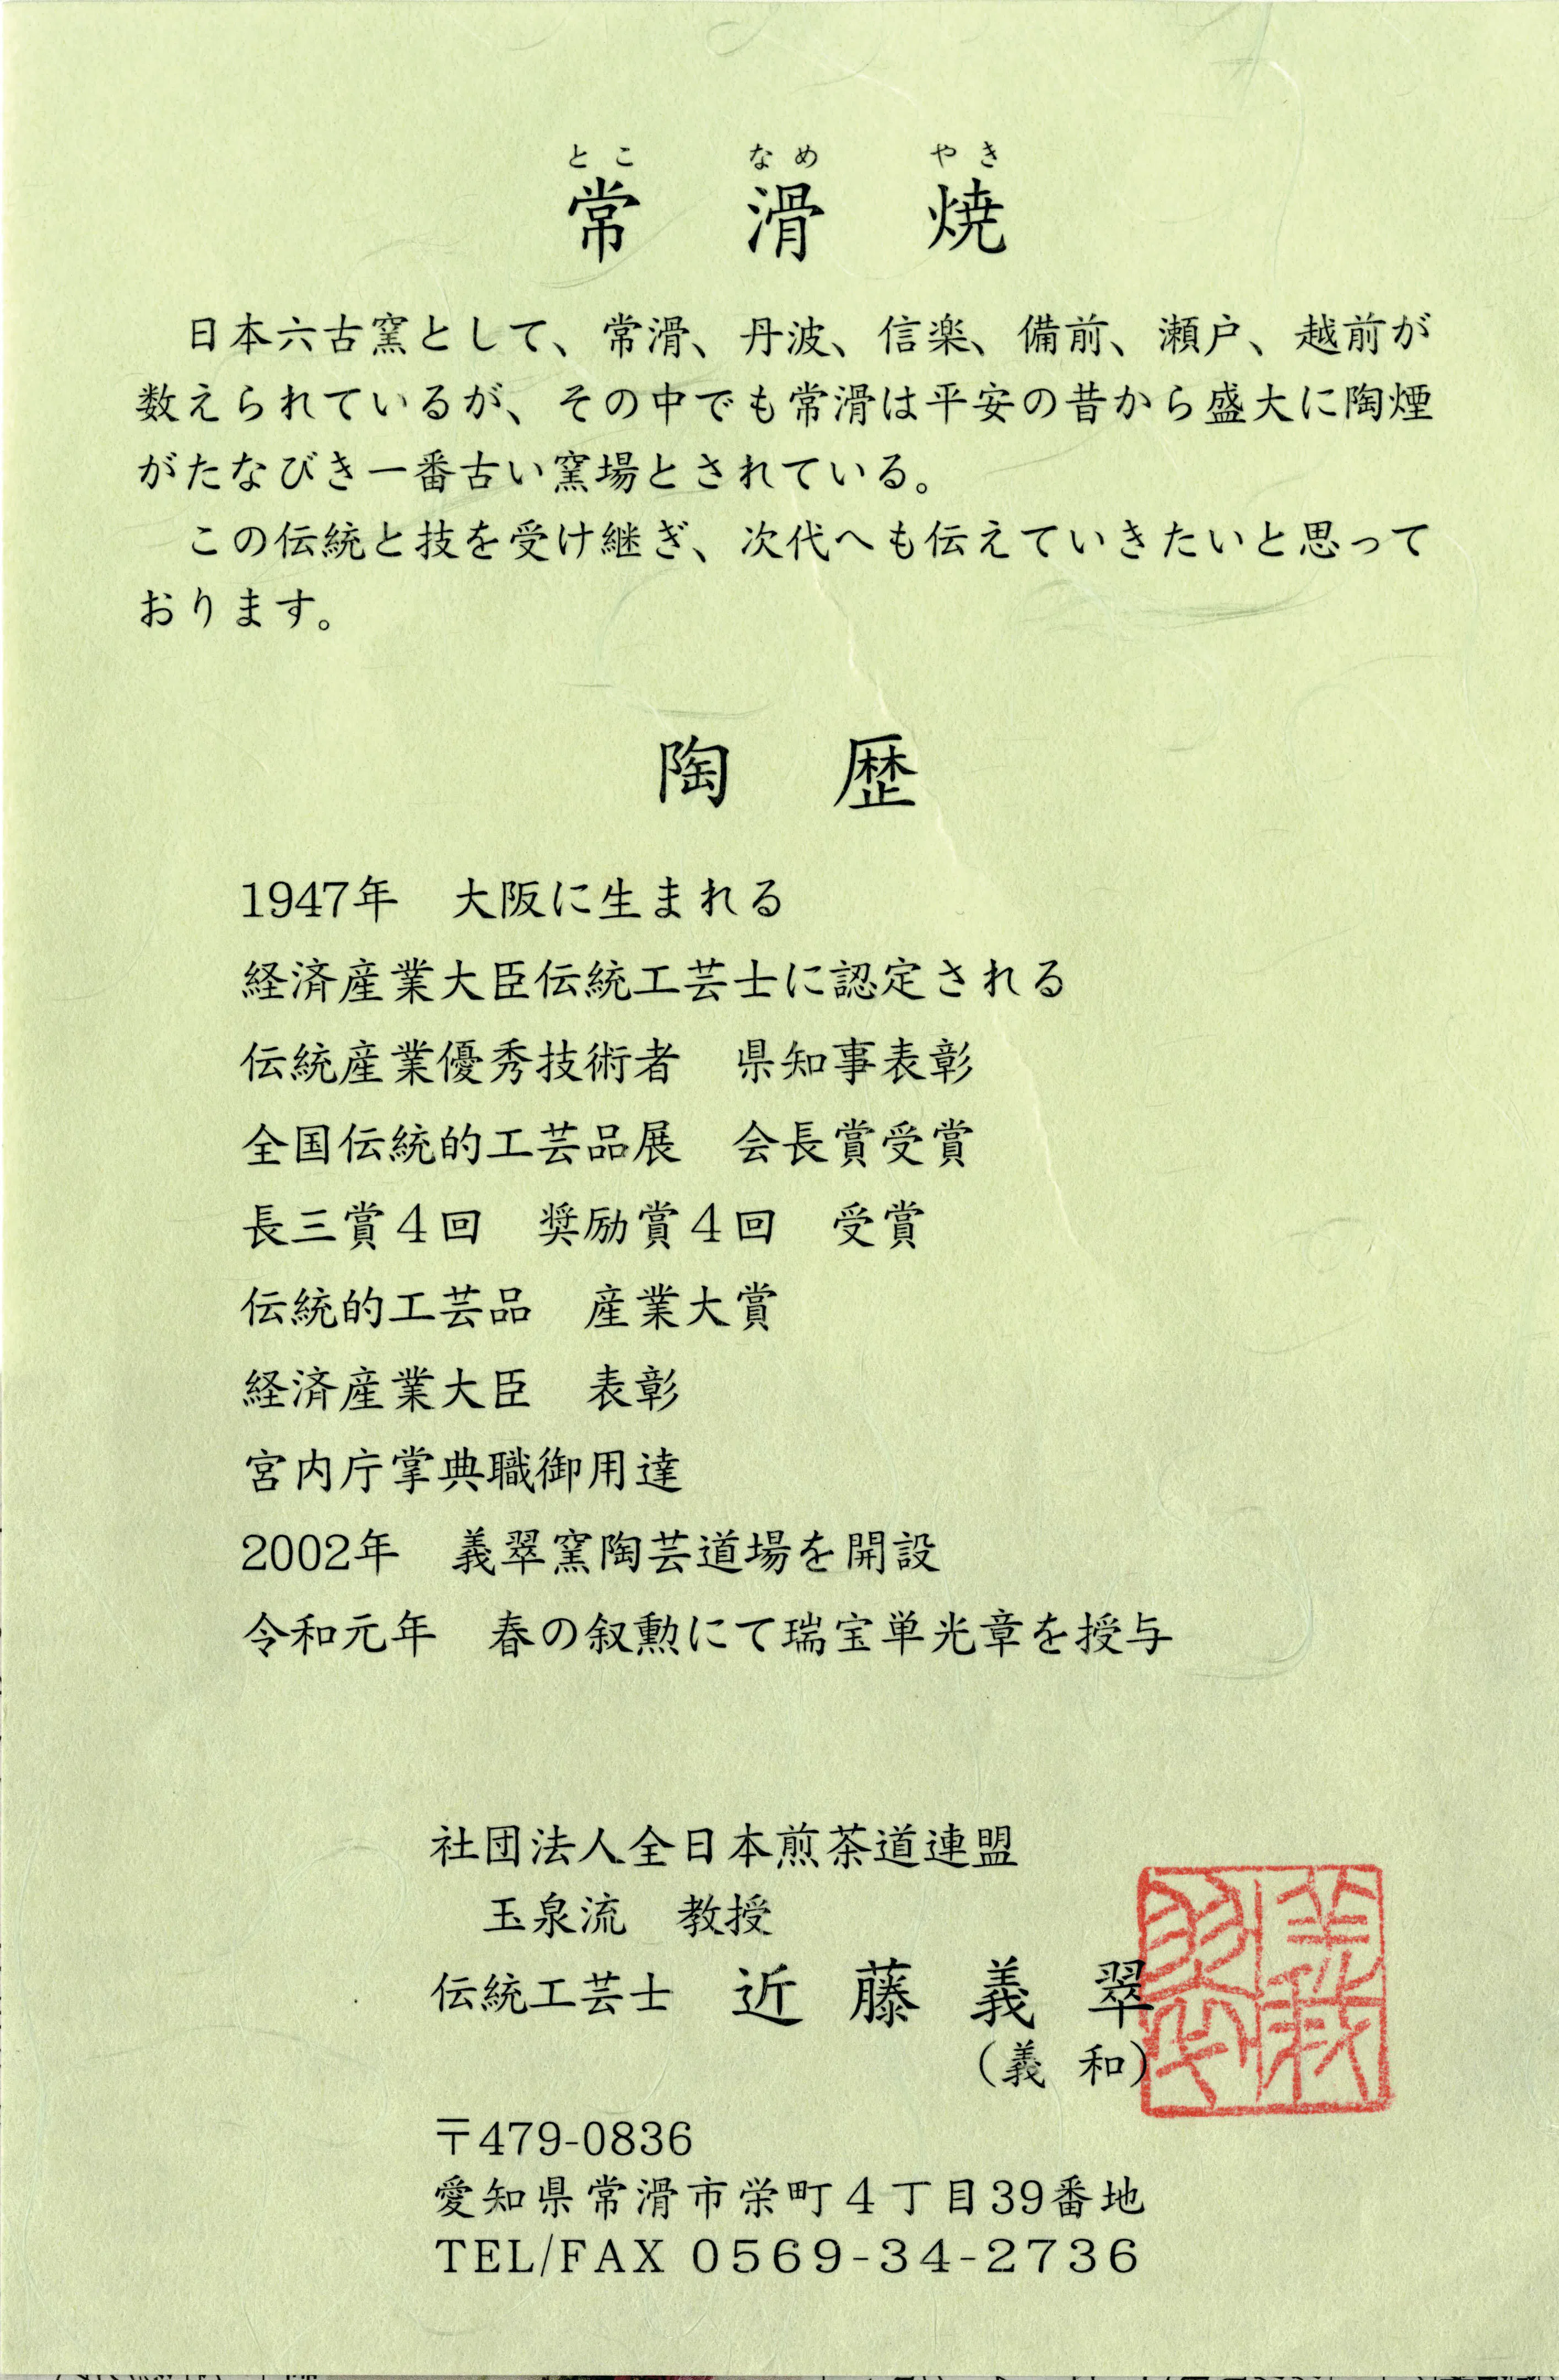 とこ なめ やき
常 滑 焼
日本六古窯として、常滑、丹波、信楽、備前、瀬戸、越前が
数えられているが、その中でも常滑は平安の昔から盛大に陶煙
がたなびき一番古い窯場とされている。
この伝統と技を受け継ぎ、次代へも伝えていきたいと思って
おります。
陶 歴
1947年 大阪に生まれる
経済産業大臣伝統工芸士に認定される
伝統産業優秀技術者 県知事表彰
全国伝統的工芸品展 会長賞受賞
長三賞4回 奨励賞4回 受賞
伝統的工芸品 産業大賞
経済産業大臣 表彰
宮内庁掌典職御用達
2002年 義翠窯陶芸道場を開設
令和元年 春の叙勲にて瑞宝単光章を授与
社団法人全日本煎茶道連盟
玉泉流 教授
伝統工芸士 近 藤 義 翠
(義 和)
〒479-0836
愛知県常滑市栄町4丁目39番地
TEL/FAX 0569-34-2736